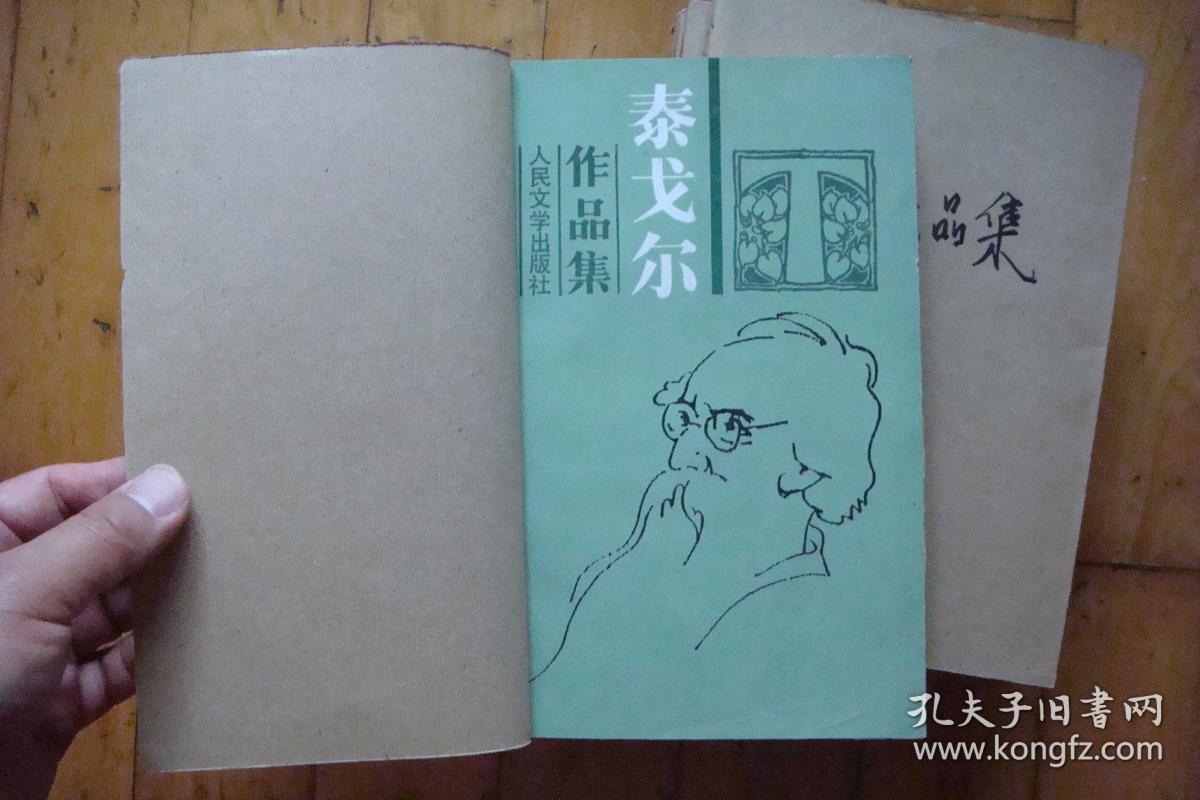 泰戈尔
作品集
人民文学出版社
T
品集
孔夫子旧書网
www.kongfz.com